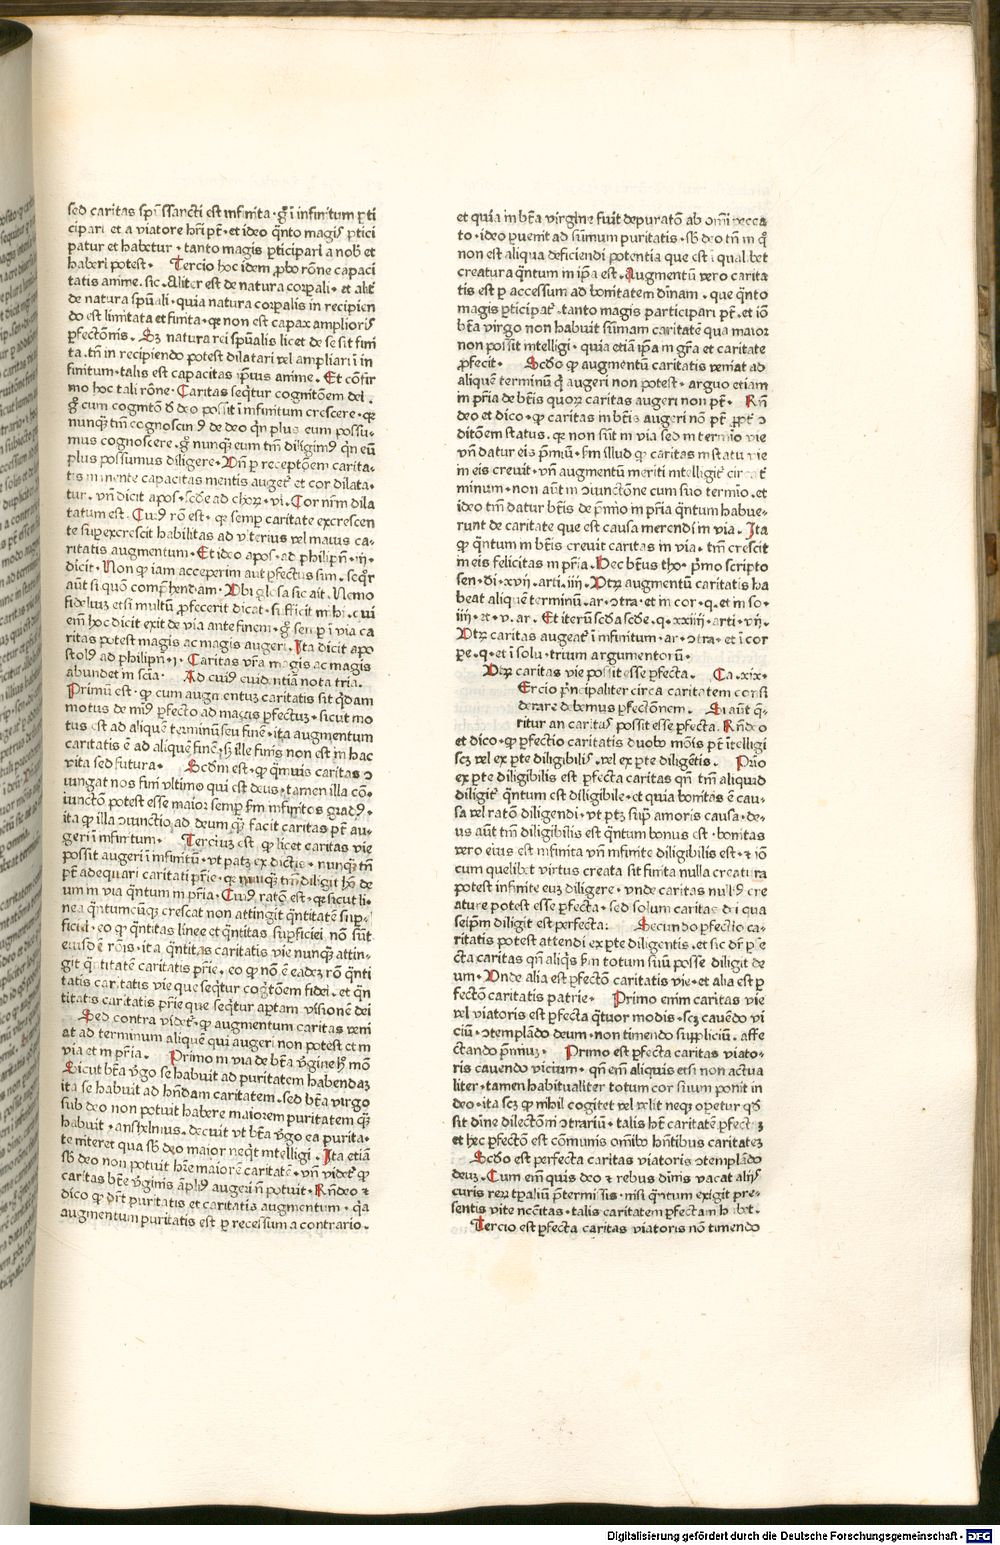 sed caritas sp̄ūssancti est infinita · gͦ ī infinitum ꝑti
cipari et a viatore hr̄i pt̄ · et ideo q̄nto magis ꝑtici
patur et habetur · tanto magis ꝑticipari a nob̄ et
haberi potest · Tercio hoc idem ꝓbo rōne capaci
tatis anime · sic · Aliter est de natura corꝑali · et alit̄
de natura spūali · quia natura corꝑalis in recipien
do est limitata et finita · qꝫ non est capax amplioris
ꝑfectōnis · Sꝫ natura rei spūalis licet de se sit fini
ta · tn̄ in recipiendo potest dilatari vel ampliari ī in
finitum · talis est capacitas ip̄ius anime · Et cōfir
mo hoc tali rōne · Caritas seqt̄ur cognitōem dei ·
gͦ cum cognitō d̄ deo possit ī infinitum crescere · qꝫ
nunqꝫ tm̄ cognoscimꝰ de deo qn̄ plus eum possu-
mus cognoscere · gͦ nunqꝫ eum tm̄ diligimꝰ qn̄ eū
plus possumus diligere · Vn̄ ꝑ receptōem carita-
tis in mente capacitas mentis auget̄ et cor dilata-
tur · vn̄ dicit apos · scd̄e ad choꝝ · vi · Cor nr̄m dila
tatum est · Cuiꝰ rō est · qꝫ semꝑ caritate excrescen
te suꝑexcrescit habilitas ad vlterius vel maius ca-
ritatis augmentum · Et ideo apos · ad philipn̄ · iij ·
dicit · Non ꝙ iam acceperim aut ꝑfectus sim · seqͦr
aūt si quō comp̄hendam · Vbi glosa sic ait · Nemo
fideliuꝫ etsi multū ꝓfecerit dicat · sufficit mihi · cui
em̄ hoc dicit exit de via ante finem · gͦ semꝑ ī via ca
ritas potest magis ac magis augeri · Ita dicit apo
stolꝰ ad philipn̄ · j · Caritas vr̄a magis ac magis
abundet in scīa · Ad cuiꝰ euidentiā nota tria ·
Primū est · ꝙ cum augmentuꝫ caritatis sit qͥdam
motus de minꝰ ꝑfecto ad magis ꝑfectuꝫ · sicut mo
tus est ad aliquē terminū seu finē · ita augmentum
caritatis ē ad aliquē finē · sꝫ ille finis non est in hac
vita sed futura · Scd̄m est · ꝙ qͣmuis caritas ↄ
iungat nos fini vltimo qui est deus · tamen illa cō-
iunctō potest esse maior semꝑ ẜm infinitos gradꝰ ·
ita ꝙ illa ↄiunctio ad deum qꝫ facit caritas pt̄ au-
geri ī infinitum · Tercius est · ꝙ licet caritas vie
possit augeri ī infinitū · vt patꝫ ex dictis · nunqꝫ tn̄
pt̄ adequari caritati pr̄ie · qꝫ nunqꝫ tm̄ diligit hō de
um in via qn̄tum in pr̄ia · Cuiꝰ ratō est · qꝫ sicut li-
nea qn̄tumcūqꝫ crescat non attingit qn̄titatē suꝑ-
ficiei · eo ꝙ qn̄titas linee et qn̄titas suꝑficiei nō sūt
eiusdē rōis · ita qn̄titas caritatis vie nunqꝫ attin-
git qn̄titatē caritatis pr̄ie · eo ꝙ nō ē eadeꝫ rō qn̄ti
tatis caritatis vie que seqt̄ur cogtōem fidei · et qn̄
titatis caritatis pr̄ie que seqt̄ur aꝑtam visionē dei
Sed contra videt̄ · ꝙ augmentum caritas veni
at ad terminum aliquē qui augeri non potest et in
via et in pr̄ia · Primo in via de bt̄a vg̓ine hͦ mō
Sicut bt̄a vg̓o se habuit ad puritatem habendaꝫ
ita se habuit ad hn̄dam caritatem · sed bt̄a virgo
sub deo non potuit habere maiorem puritatem qꝫ
habuit · anshelmus · decuit vt bt̄a vg̓o ea purita-
te niteret qua sb̄ deo maior neqͥt intelligi · Ita etiā
sb̄ deo non potuit hr̄e maiorē caritatē · vn̄ videt̄ ꝙ
caritas bt̄e vg̓inis āpliꝰ augeri n̄ potuit · Rn̄deo ⁊
dico ꝙ dr̄nt puritatis et caritatis augmentum · qͥa
augmentum puritatis est ꝑ recessum a contrario ·
et quia in bt̄a virgine fuit depuratō ab omī pecca
to · ideo ꝑuenit ad sūmum puritatis · sb̄ deo tn̄ in qͣ
non est aliqua deficiendi potentia que est ī qualibet
creatura qn̄tum in ip̄a est · Augmentū vero carita
tis est ꝑ accessum ad bonitatem diuinam · que qn̄to
magis ꝑticipat̄ · tanto magis participari pt̄ · et iō
bt̄a virgo non habuit sūmam caritatē qua maior
non possit intelligi · quia etiā ip̄a in gr̄a et caritate
ꝓfecit · Scd̄o ꝙ augmentū caritatis veniat ad
aliquē terminū qͥ augeri non potest · arguo etiam
in pr̄ia de bt̄is quoꝝ caritas augeri non pt̄ · Rn̄
deo et dico · ꝙ caritas in bt̄is augeri nō pt̄ ꝓpt̄ ↄ
ditōem status · qꝫ non sūt in via sed in termino vie
vn̄ datur eis p̄miū · ẜm illud ꝙ caritas in statu vie
in eis creuit · vn̄ augmentū meriti intelligit̄ circa t̄
minum · non aūt in ↄiunctōne cum suo termino · et
ideo tm̄ datur bt̄is de p̄mio in pr̄ia qn̄tum habue-
runt de caritate que est causa merendi in via · Ita
ꝙ qn̄tum in bt̄is creuit caritas in via · tm̄ crescit
in eis felicitas in pr̄ia · Hec bt̄us tho · p̄mo scripto
sen · di · xvij · arti · iiij · Vtꝝ augmentū caritatis ha
beat aliquē terminū · ar · ↄtra · et in cor · q · et in so-
iiij · et · v · ar · Et iterū scd̄a scd̄e · q · xxiiij · arti · vij ·
Vtꝝ caritas augeat̄ ī infinitum · ar · ↄtra · et ī cor
ꝑe · q · et ī solu · trium argumentorū ·
Vtꝝ caritas vie possit esse ꝑfecta · Ca · xix ·
Ercio pn̄cipaliter circa caritatem consi
derare debemus ꝑfectōnem · Si aūt q̄-
ritur an caritas possit esse ꝑfecta · Rn̄deo
et dico · ꝙ ꝑfectio caritatis duobꝰ mōis pt̄ ītelligi
scꝫ vel ex ꝑte diligibilis · vel ex ꝑte diligētis · Prīo
ex ꝑte diligibilis est ꝑfecta caritas qn̄ tm̄ aliquid
diligit̄ qn̄tum est diligibile · et quia bonitas ē cau-
sa vel ratō diligendi · vt ptꝫ suꝑ amoris causa · de-
us aūt tm̄ diligibilis est qn̄tum bonus est · bonitas
vero eius est infinita vn̄ infinite diligibilis est · ⁊ iō
cum quelibet virtus creata sit finita nulla creatura
potest infinite euꝫ diligere · vnde caritas nulliꝰ cre
ature potest esse ꝑfecta · sed solum caritas dei qua
seip̄m diligit est perfecta · Secundo ꝑfectio ca-
ritatis potest attendi ex ꝑte diligentis · et sic dr̄ ꝑfe
cta caritas qn̄ aliqͥs ẜm totum suū posse diligit de
um · Vnde alia est ꝑfectō caritatis vie · et alia est ꝑ
fectō caritatis patrie · Primo enim caritas vie
vel viatoris est ꝑfecta qͣtuor modis · scꝫ cauēdo vi
ciū · ↄtemplādo deum · non timendo suppliciū · affe
ctando p̄miuꝫ · Primo est ꝑfecta caritas viato-
ris cauendo vicium · qn̄ em̄ aliquis etsi non actua
liter · tamen habitualiter totum cor suum ponit in
deo · ita scꝫ ꝙ nihil cogitet vel velit neqꝫ oꝑetur qd̄
sit diuine dilectōni ↄtrariū · talis hꝫ caritatē ꝑfectaꝫ
et hec ꝑfectō est cōmunis omībꝰ hn̄tibus caritateꝫ
Scd̄o est perfecta caritas viatoris ↄtemplādo
deuꝫ · Cum em̄ quis deo ⁊ rebus diuinis vacat alijs
curis reꝝ tꝑaliū p̄termissis · nisi qn̄tum exigit pre-
sentis vite necc̄itas · talis caritatem ꝑfectam habet ·
Tercio est ꝑfecta caritas viatoris nō timendo
Digitalisierung gefördert durch die Deutsche Forschungsgemeinschaft - DFG